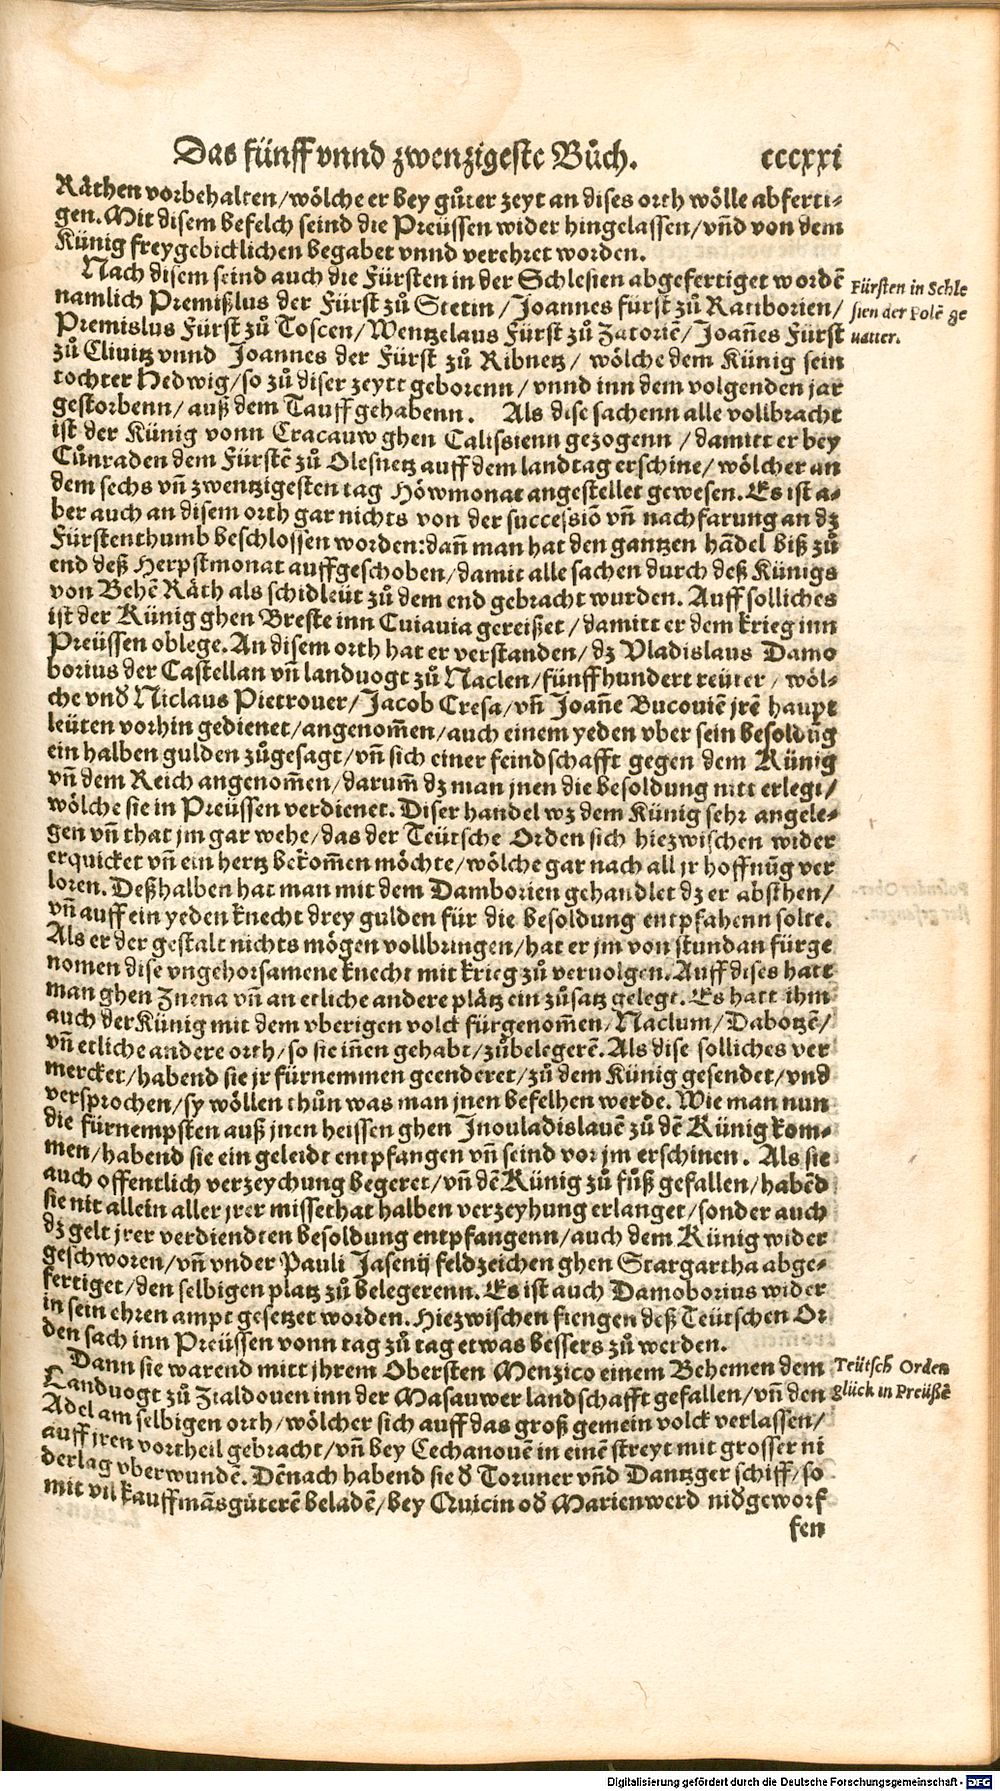 Das fünff vnnd zwenzigeste Bůch. cccxxi
Räthen vorbehalten/wölche er bey gůter zeyt an dises orth wölle abferti-
gen. Mit disem befelch seind die Preüssen wider hingelassen/vñd von dem
Künig freygebicklichen begabet vnnd verehret worden.
Nach disem seind auch die Fürsten in der Schlesien abgefertiget wordẽ
Fürsten in Schle
namlich Premißlus der Fürst zů Stetin/Joannes fürst zů Ratiborien/
sien der Polẽ ge
Premislus Fürst zů Toscen/Wentzelaus Fürst zů Zatoriẽ/Joañes Fürst
uatter.
zů Clivitz vnnd Joannes der Fürst zů Ribnetz/ wölche dem Künig sein
tochter Hedwig/so zů diser zeytt geborenn/vnnd inn dem volgenden jar
gestorbenn/auß dem Tauff gehabenn. Als dise sachenn alle vollbracht
ist der Künig vonn Cracauw ghen Calissienn gezogenn/damitt er bey
Cůnraden dem Fürstẽ zů Olesnetz auff dem landtag erschine/wölcher an
dem sechs vñ zwentzigesten tag Höwmonat angestellet gewesen. Es ist a-
ber auch an disem orth gar nichts von der successiõ vñ nachfarung an dz
Fürstenthumb beschlossen worden:dañ man hat den gantzen hãdel biß zů
end deß Herpstmonat auffgeschoben/damit alle sachen durch deß Künigs
von Behẽ Räth als schidleüt zů dem end gebracht wurden. Auff solliches
ist der Künig ghen Breste inn Cuiauia gereißet/damitt er dem krieg inn
Preüssen oblege. An disem orth hat er verstanden/dz Vladislaus Damo
borius der Castellan vñ landuogt zů Naclen/fünffhundert reüter/wöl-
che vnd Niclaus Pietrouer/Jacob Cresa/vñ Joañe Bucouiẽ jrẽ haupt
leüten vorhin gedienet/angenom̃en/auch einem yeden vber sein besoldũg
ein halben gulden zůgesagt/vñ sich einer feindschafft gegen dem Künig
vñ dem Reich angenom̃en/darum̃ dz man jnen die besoldung nitt erlegt/
wölche sie in Preüssen verdienet. Diser handel wz dem Künig sehr angele-
gen vñ that jm gar wehe/das der Teütsche Orden sich hiezwischen wider
erquicket vñ ein hertz bekom̃en möchte/wölche gar nach all jr hoffnũg ver
loren. Deßhalben hat man mit dem Damborien gehandlet dz er absthen/
vñ auff ein yeden knecht drey gulden für die besoldung entpfahenn solte.
Als er der gestalt nichts mögen vollbringen/hat er jm von stundan fürge
nomen dise vngehorsamene knecht mit krieg zů veruolgen. Auff dises hatt
man ghen Znena vñ an etliche andere plätz ein zůsatz gelegt. Es hatt ihm
auch der Künig mit dem vberigen volck fürgenom̃en/Naclum/Dabotzẽ/
vñ etliche andere orth/so sie iñen gehabt/zůbelegerẽ. Als dise solliches ver
mercket/habend sie jr fürnemmen geenderet/zů dem Künig gesendet/vnd
versprochen/sy wöllen thůn was man jnen befelhen werde. Wie man nun
die fürnempsten auß jnen heissen ghen Inouladislauẽ zů dẽ Künig kom-
men/habend sie ein geleidt entpfangen vñ seind vor jm erschinen. Als sie
auch offentlich verzeychung begeret/vñ dẽ Künig zů fůß gefallen/habẽd
sie nit allein aller jrer missethat halben verzeyhung erlanget/sonder auch
dz gelt jrer verdiendten besoldung entpfangenn/auch dem Künig wider
geschworen/vñ vnder Pauli Jasenij feldzeichen ghen Stargartha abge-
fertiget/den selbigen platz zů belegerenn. Es ist auch Damoborius wider
in sein ehren ampt gesetzet worden. Hiezwischen fiengen deß Teütschen Or
den sach inn Preüssen vonn tag zů tag etwas bessers zů werden.
Dann sie warend mitt jhrem Obersten Menzico einem Behemen dem
Teütsch Orden
Landuogt zů Zialdouen inn der Masauwer landschafft gefallen/vñ den
glück in Preüßẽ
Adel am selbigen orth/wölcher sich auff das groß gemein volck verlassen/
auff jren vortheil gebracht/vñ bey Cechanouẽ in einẽ streyt mit grosser ni
derlag vberwundẽ. Dẽnach habend sie d Toruner vñd Dantzger schiff/so
mit vil kauffmãsgüterẽ beladẽ/bey Quicin od Marienwerd nidgeworf
fen
Digitalisierung gefördert durch die Deutsche Forschungsgemeinschaft - DFG